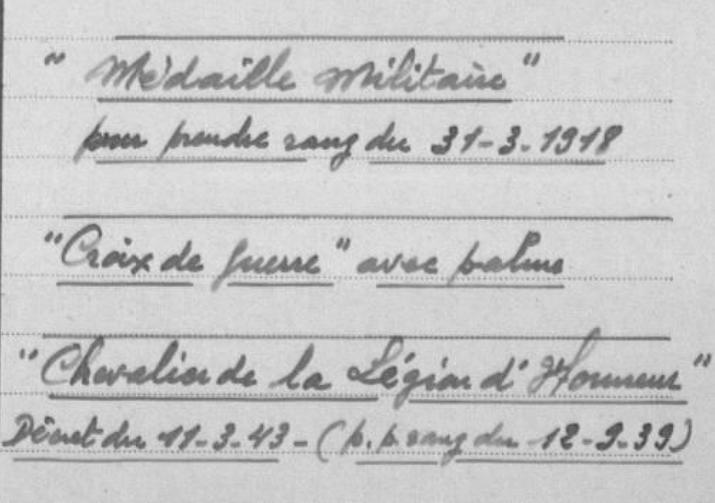 "Médaille Militaire"
pour prendre rang du 31-3-1918
"Croix de guerre" avec palme
"Chevalier de la Légion d'Honneur"
Décret du 11-3-43 - (p. p. rang du 12-9-39)